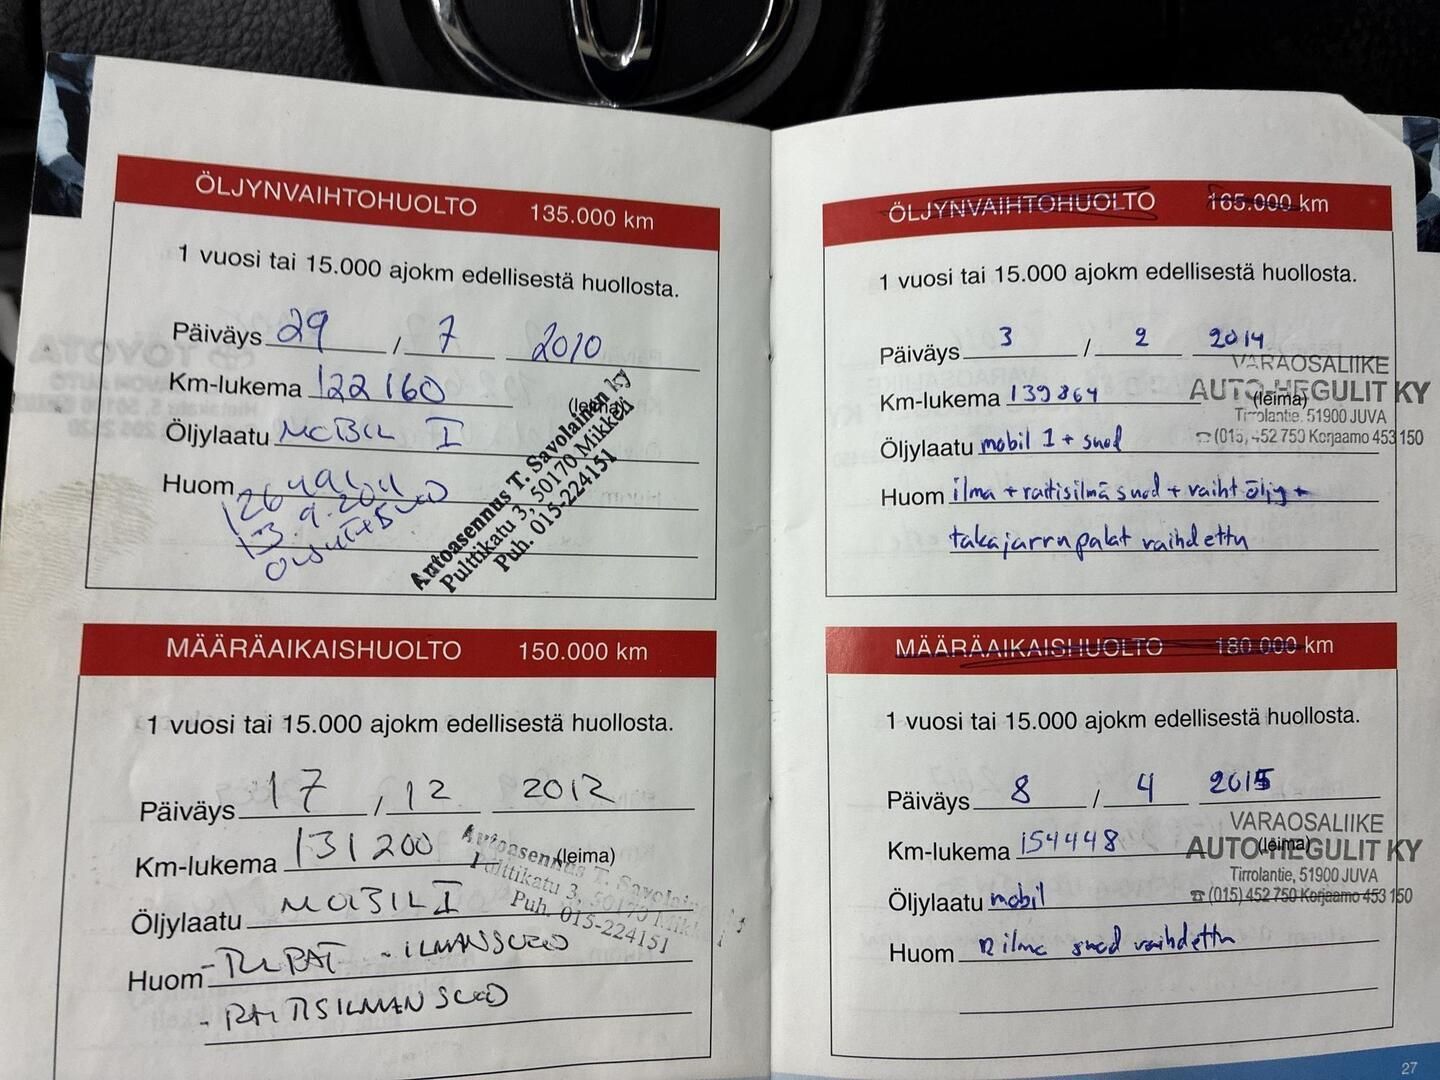 ÖLJYNVAIHTOHUOLTO 135.000 km
1 vuosi tai 15.000 ajokm edellisestä huollosta.
Päiväys 29 / 7 2010
Km-lukema 122 160
(leima)
Öljylaatu MOBIL I
Huom
13.9.2011
Autoasennus T. Savolainen ky
Pulttikatu 3, 50170 Mikkeli
Puh. 015-224151
MÄÄRÄAIKAISHUOLTO 150.000 km
1 vuosi tai 15.000 ajokm edellisestä huollosta.
Päiväys 17 / 12 2012
Km-lukema 131 200
(leima)
Öljylaatu MOBIL I
Huom - TULPAT - ILMANSUOD
- RAITISILMANSUOD
Autoasennus T. Savolainen ky
Pulttikatu 3, 50170 Mikkeli
Puh. 015-224151
ÖLJYNVAIHTOHUOLTO 165.000 km
1 vuosi tai 15.000 ajokm edellisestä huollosta.
Päiväys 3 / 2 2014
Km-lukema 139864
(leima)
Öljylaatu mobil 1 + suod
Huom ilma + raitisilma suod + vaiht öljy +
takajarrupalat vaihdettu
VARAOSALIIKE
AUTO-HEGULIT KY
Tirrolantie, 51900 JUVA
☎(015) 452 750 Korjaamo 453 150
MÄÄRÄAIKAISHUOLTO 180.000 km
1 vuosi tai 15.000 ajokm edellisestä huollosta.
Päiväys 8 / 4 2015
Km-lukema 154448
(leima)
Öljylaatu mobil
Huom ilma suod vaihdettu
VARAOSALIIKE
AUTO-HEGULIT KY
Tirrolantie, 51900 JUVA
☎(015) 452 750 Korjaamo 453 150
27
TOYOTA